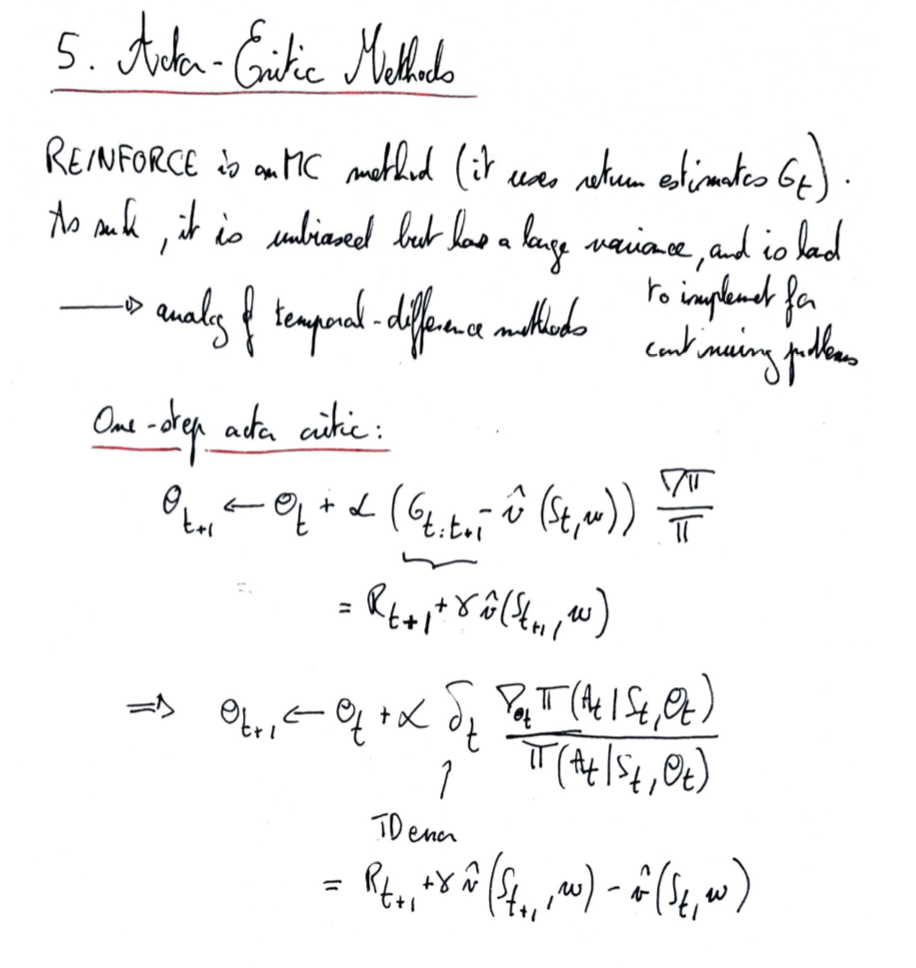 5. Actor-Critic Methods
REINFORCE is an MC method (it uses return estimates G_t).
As such, it is unbiased but has a large variance, and is hard
to implement for
continuing problems
⟶ analog of temporal-difference methods
One-step actor critic:
θ_{t+1} ← θ_t + α (G_{t:t+1} - v̂ (S_t, w)) ∇π/π
= R_{t+1} + γ v̂(S_{t+1}, w)
⇒ θ_{t+1} ← θ_t + α δ_t ∇_{θ_t} π(A_t | S_t, θ_t) / π(A_t | S_t, θ_t)
↑
TD error
= R_{t+1} + γ v̂ (S_{t+1}, w) - v̂ (S_t, w)